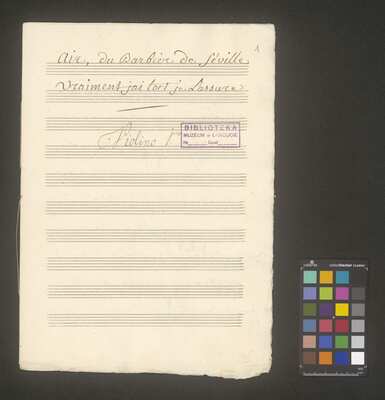 1
Air, du Barbier de Séville
Vraiment j'ai tort je Lassure
Violino 1º
BIBLIOTEKA
MUZEUM w ŁAŃCUCIE
Nr